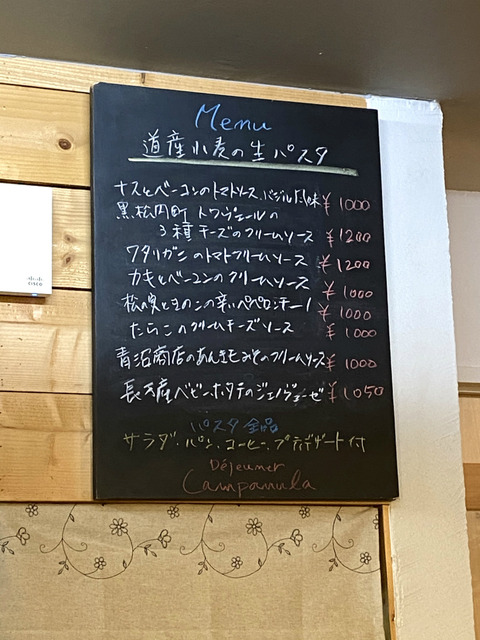 Menu
道産小麦の生パスタ
ナスとベーコンのトマトソース バジル風味 ¥1000
黒松内町 トワヴェールの
3種チーズのクリームソース ¥1200
ワタリガニのトマトクリームソース ¥1200
カキとベーコンのクリームソース ¥1000
松の実ときのこの辛いペペロンチーノ ¥1000
たらこのクリームチーズソース ¥1000
青沼商店のあんきもみそのクリームソース ¥1000
長万部産ベビーホタテのジェノヴェーゼ ¥1050
パスタ全品
サラダ・パン・コーヒー・プティデザート付
Déjeuner
Campanula